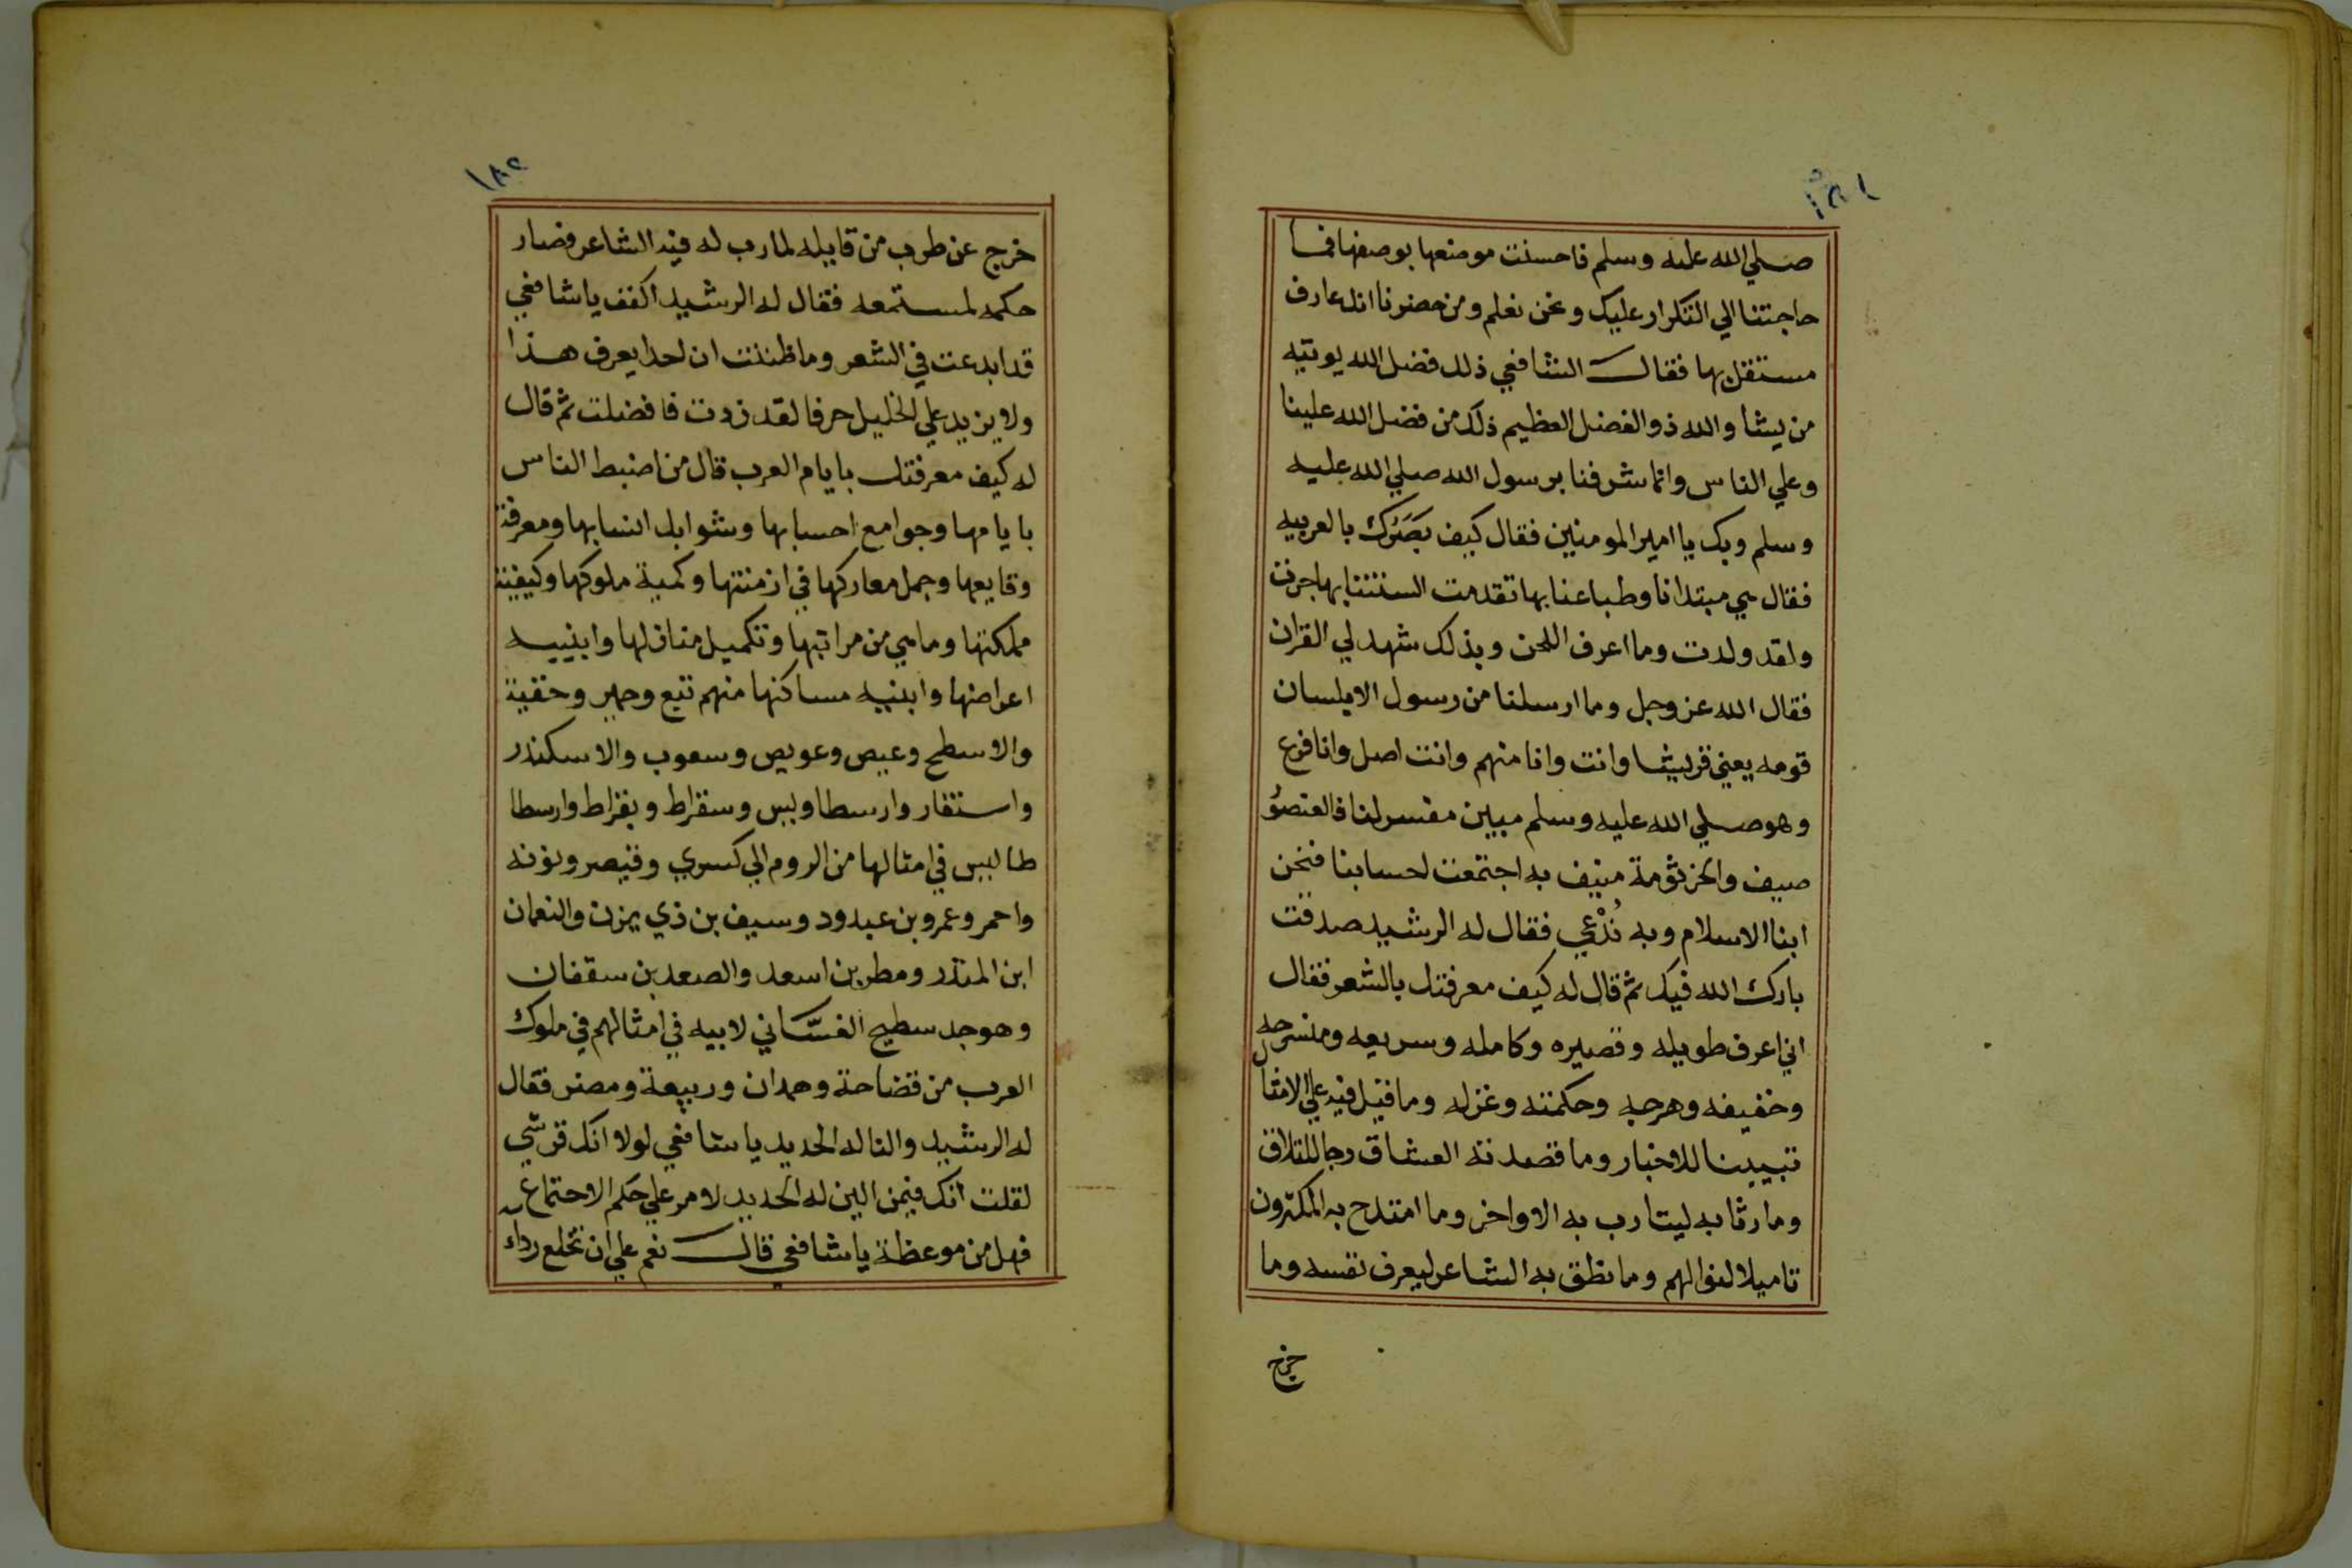 ١٨١
صلي الله عليه وسلم فاحسنت موضعها بوصفها فما
حاجتنا الي التكرار عليك ونحن نعلم ومن حضرنا انك عارف
مستقل بها فقال الشافعي ذلك فضل الله يوتيه
من يشا والله ذو الفضل العظيم ذلك من فضل الله علينا
وعلي الناس وانما شرفنا برسول الله صلي الله عليه
وسلم وبك يا امير المومنين فقال كيف بَصَرُك بالعربيه
فقال هي مبتدانا وطباعنا بها تقدمت السنتنا بها جرت
ولقد ولدت وما اعرف اللحن وبذلك شهد لي القران
فقال الله عز وجل وما ارسلنا من رسول الا بلسان
قومه يعني قريشا وانت وانا منهم وانت اصل وانا فرع
وهو صلي الله عليه وسلم مبين مفسر لنا فالعنصُر
صيف والجرثومة منيف به اجتمعت احسابنا فنحن
ابنا الاسلام وبه نُدْعي فقال له الرشيد صدقت
بارك الله فيك ثم قال له كيف معرفتك بالشعر فقال
اني اعرف طويله وقصيره وكامله وسريعه ومنسرحه
وخفيفه وهرجه وحكمته وغزله وما قيل فيه علي الامثال
تبيينا للاخبار وما قصدته العشاق رجا للتلاق
وما رثا به ليتارب به الاواخر وما امتدح به المكثرون
تاميلا لنوالهم وما نطق به الشاعر ليعرف نفسه وما
خرج
١٨٢
خرج عن طرب من قايله لمارب له فيه الشاعر فصار
حكمه لمستمعه فقال له الرشيد اكفف يا شافعي
قد ابدعت في الشعر وما ظننت ان احدا يعرف هذا
ولا يزيد علي الخليل حرفا لقد زدت فافضلت ثم قال
له كيف معرفتك بايام العرب قال من اضبط الناس
بايامها وجوامع احسابها وشوابك انسابها ومعرفة
وقايعها وجمل معاركها في ازمنتها وكمية ملوكها وكيفية
مملكتها وماهي من مراتبها وتكميل منازلها وابنيه
اعراضها وابنيه مساكنها منهم تبع وحمير وخفية
والاسطح وعيص وعويص وسعوب والاسكندر
واستفار وارسطاوليس وسقراط وبقراط وارسطا
طاليس في امثالها من الروم الي كسري وقيصر ونوبه
واحمر وعمرو بن عبدود وسيف بن ذي يزن والنعمان
ابن المنذر ومطر بن اسعد والصعد بن سقفان
وهو جد سطيح الغسّاني لابيه في امثالهم في ملوك
العرب من قضاحة وهمدان وربيعة ومضر فقال
له الرشيد والنا له الحديد يا شافعي لولا انك قرشي
لقلت انك فيمن الين له الحديد لامر علي حكم الاجتماع
فهل من موعظة يا شافعي قال نعم علي ان تخلع رداء